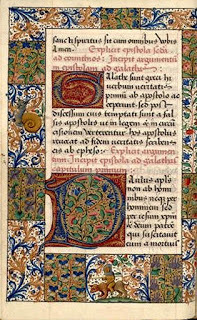 sancti spiritus sit cum omnibus vobis
Amen. Explicit epistola secūda
ad corinthios: Incipit argumentū
in epistolam ad galathas
Galathe sunt greci hi
verbum veritatis
primū ab apostolo ac
ceperunt. sed post
discessum eius temptati sunt a fal
sis apostolis ut in legem et in circū
cisionem verterentur. Hos apostolus
revocat ad fidem veritatis scribens
eis ab epheso. Explicit argumen
tum. Incipit epistola ad galathas
capitulum primum
Paulus apls
non ab homi
nibus neqz per
hominem sed
per iesum xpm
et deum patrē
qui suscitavit
eum a mortuis